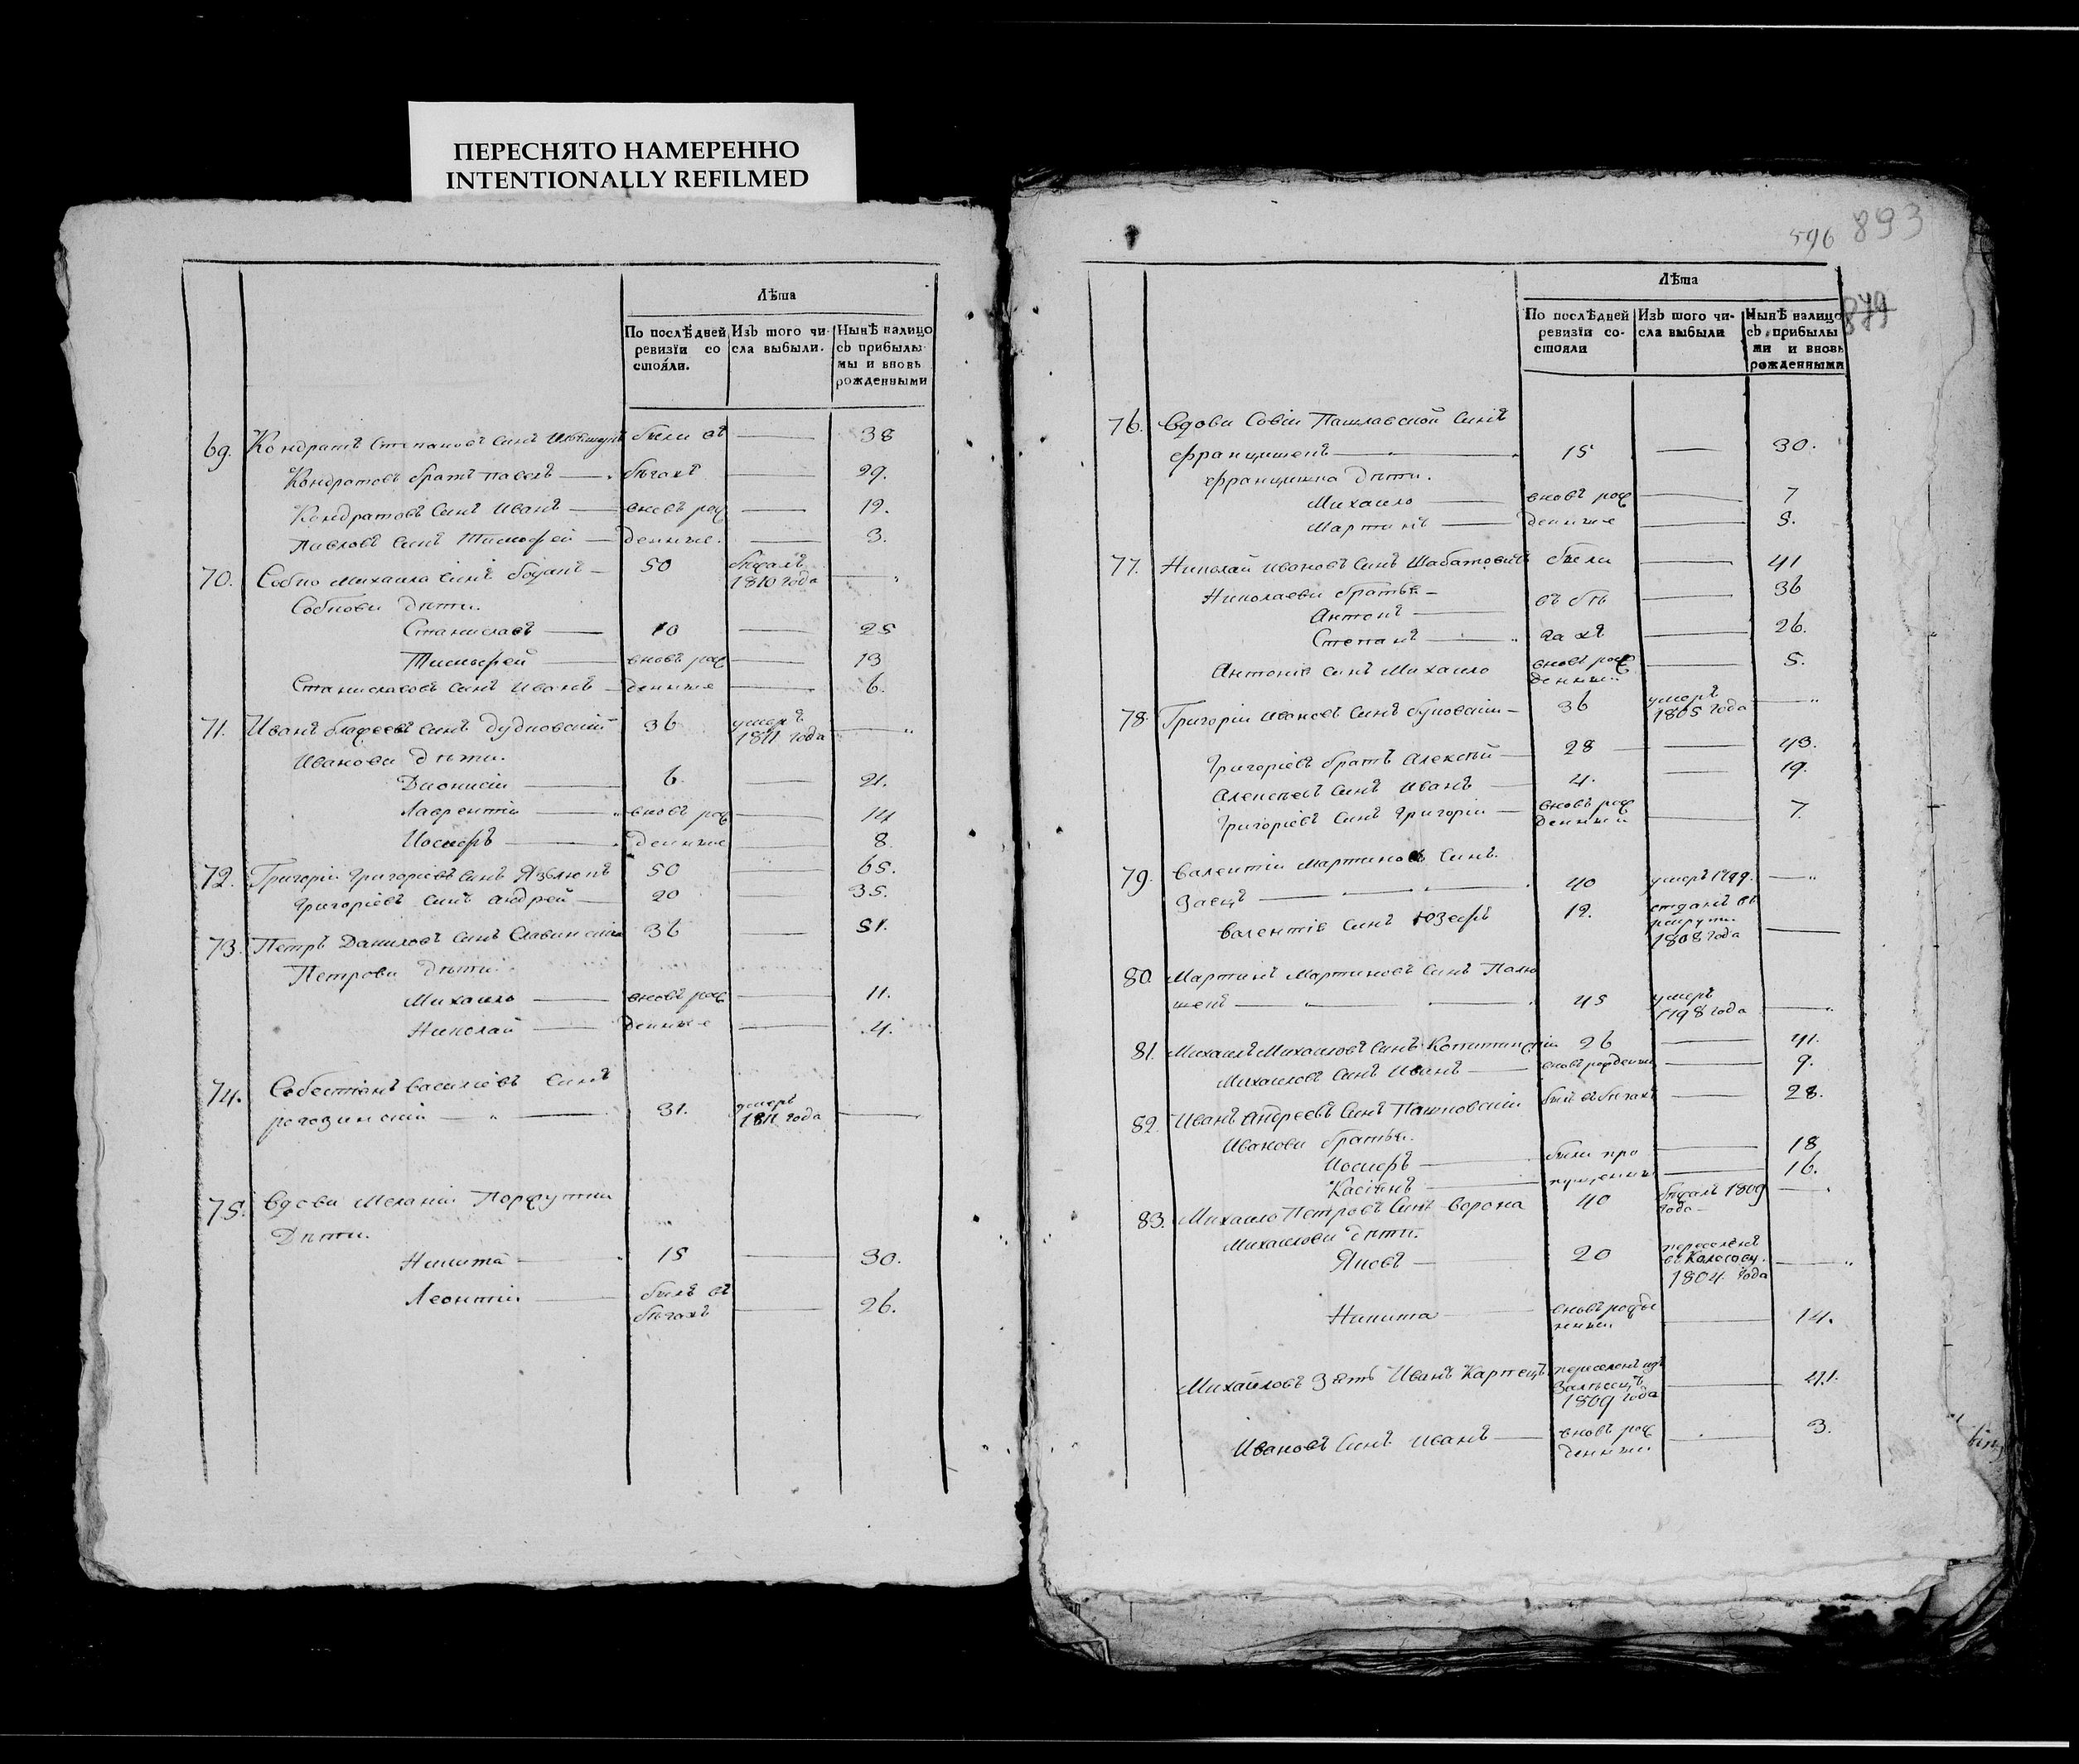 ПЕРЕСНЯТО НАМЕРЕННО
INTENTIONALLY REFILMED
Лѣта
По послѣдней ревизіи состояли.
Изъ того числа выбыли.
Нынѣ налицо съ прибылымы и вновь рожденными
69. Кондратъ Степановъ Синъ были въ — 38
Кондратовъ братъ Павелъ — бѣгахъ — 29.
Кондратовъ Синъ Иванъ — вновь рож — 12.
Павловъ Синъ Тимофей — денные. — 3.
70. Собко Михаила Синъ — 50 бѣжалъ 1810 года — „
Собкови Дѣти.
Станиславъ — 10 — 25
Тимофей — вновь рож — 13
Станиславовъ Синъ Иванъ — денные — 6.
71. Иванъ Синъ Дудковскій 36 умеръ 1811 года — „
Иванови Дѣти.
Дионисій — 6. — 21.
Лаврентій — вновь рож — 14
Иосифъ — денные — 8.
72. Григорій Григоріевъ Синъ 50 — 65.
Григоріевъ Синъ Андрей — 20 — 35.
73. Петръ Даниловъ Синъ Славинскій 36 — 51.
Петрови Дѣти.
Михайло — вновь рож — 11.
Николай — денные — 4.
74. Себестіанъ Василіевъ Синъ
рогозинскій — „ — 31. умеръ 1811 года —
75. Вдови Меланіи
Дѣти.
Никита — 15 — 30.
Леонтій — билъ въ бѣгахъ — 26.
596 893
879
Лѣта
По послѣдней ревизіи состояли
Изъ того числа выбыли
Нынѣ налицо съ прибылыми и вновь рожденными
76. Вдови Софіи Синъ
Францишекъ — 15 — 30.
Францишка Дѣти.
Михайло — вновь рож — 7
Мартинъ — денные — 5.
77. Николай Ивановъ Синъ Шабатовичъ били — 41
Николаеви братья —
Антонъ — въ бѣ — 36
Степанъ — „ гахъ — 26.
Антонів Синъ Михайло вновь рожденны — 5.
78. Григорій Ивановъ Синъ — 36 умеръ 1805 года — „
Григоріевъ братъ Алексѣй — 28 — 43.
Алексѣевъ Синъ Иванъ — 4. — 19.
Григоріевъ Синъ Григорій — вновь рожденный — 7.
79. Валентій Мартиновъ Синъ.
Заецъ — 40 умеръ 1799. — „
Валентіе Синъ Юзефъ 12. отданъ въ рекрути 1808 года —
80. Мартинъ Мартиновъ Синъ
— 45 умеръ 1798 года — „
81. Михаилъ Михаиловъ Синъ 26 — 41.
Михаиловъ Синъ Иванъ — вновь рожденны — 9.
82. Иванъ Андреевъ Синъ билъ въ бѣгахъ — 28.
Иванови братья.
Иосифъ — били про — 18
Касіянъ — пущенны — 16.
83. Михайло Петровъ Синъ Ворона 40 бѣжалъ 1809 года — „
Михаилови Дѣти.
Яковъ — 20 переселенъ въ 1804 года — „
Никита — вновь рожденны — 14.
Михайловъ Зять Иванъ Карпецъ переселенъ изъ 1809 года — 41.
Ивановъ Синъ Иванъ — вновь рожденны — 3.